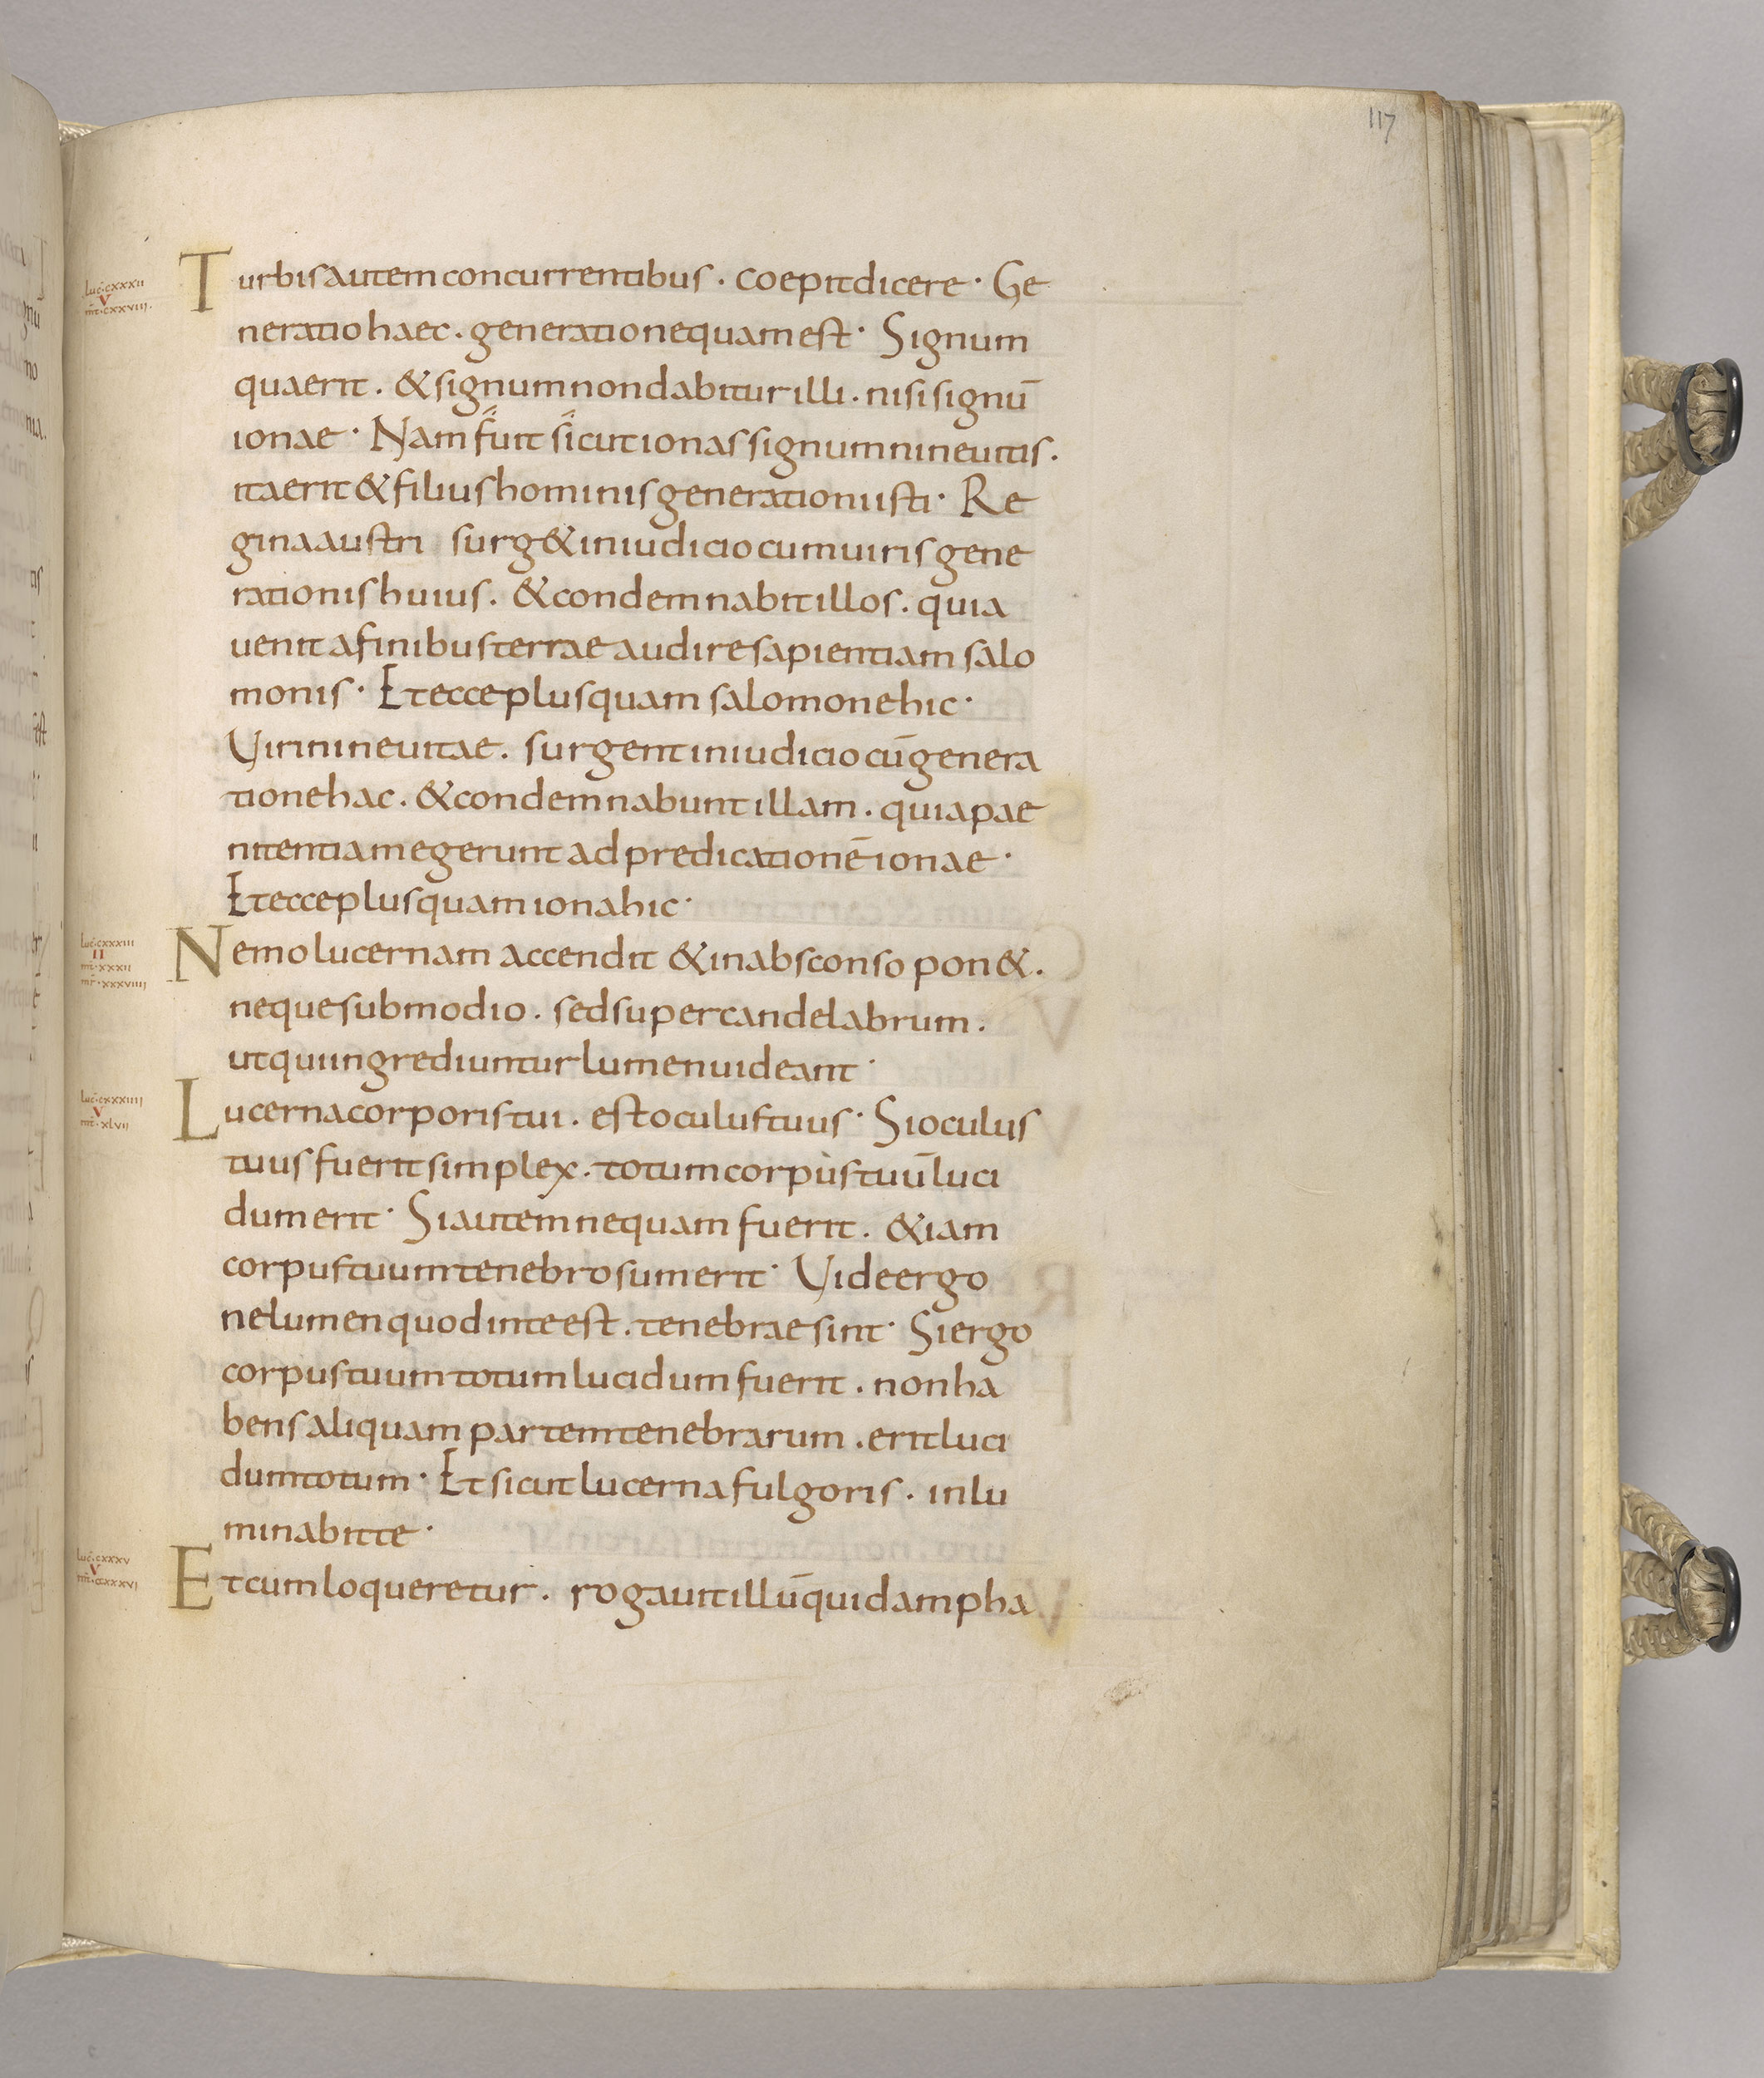 117
luc̄·cxxxii
v
mt̄·cxxviii.
Turbis autem concurrentibus · coepit dicere · Ge
neratio haec · generatio nequam est · Signum
quaerit · & signum non dabitur illi · nisi signū
ionae · Nam fuit sicut ionas signum nineuitis ·
ita erit & filius hominis generationi isti · Re
gina austri surg& in iudicio cum uiris gene
rationis huius · & condemnabit illos · quia
uenit a finibus terrae audire sapientiam salo
monis · Et ecce plus quam salomone hic ·
Uiri nineuitae · surgent in iudicio cū genera
tione hac · & condemnabunt illam · quia pae
nitentiam egerunt ad predicationē ionae ·
Et ecce plus quam iona hic ·
luc̄·cxxxiii
II
mt̄·xxxii
mr̄·xxxviiii
Nemo lucernam accendit & in absconso pon& ·
neque sub modio · sed super candelabrum ·
ut qui ingrediuntur lumen uideant ·
luc̄·cxxxiiii
v
mt̄·xlvii
Lucerna corporis tui · est oculus tuus · Si oculus
tuus fuerit simplex · totum corpus tuū luci
dum erit · Si autem nequam fuerit · &iam
corpus tuum tenebrosum erit · Uide ergo
ne lumen quod in te est · tenebrae sint · Si ergo
corpus tuum totum lucidum fuerit · non ha
bens aliquam partem tenebrarum · erit luci
dum totum · Et sicut lucerna fulgoris · inlu
minabit te ·
luc̄·cxxxv
v
mt̄·ccxxxvi
Et cum loqueretur · rogauit illū quidam pha